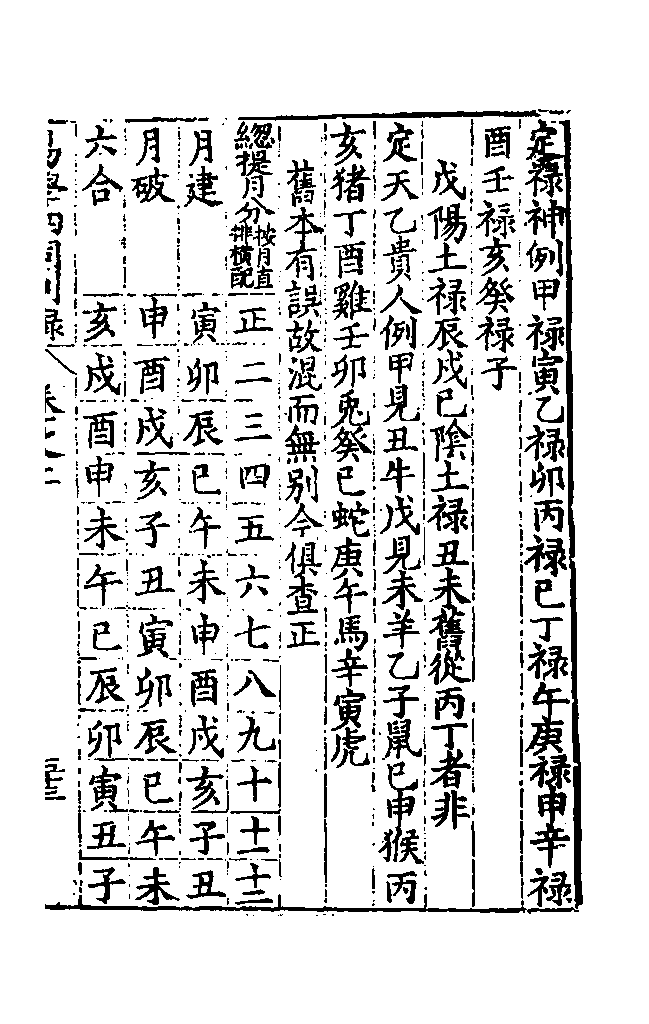 定祿神例甲祿寅乙祿卯丙祿巳丁祿午庚祿申辛祿
酉壬祿亥癸祿子
戊陽土祿辰戌己陰土祿丑未舊從丙丁者非
定天乙貴人例甲見丑牛戊見未羊乙子鼠己申猴丙
亥猪丁酉雞壬卯兎癸巳蛇庚午馬辛寅虎
舊本有誤故混而無别今俱查正
緫提月分按月直排橫配正二三四五六七八九十十一十二
月建寅卯辰巳午未申酉戌亥子丑
月破申酉戌亥子丑寅卯辰巳午未
六合亥戌酉申未午巳辰卯寅丑子